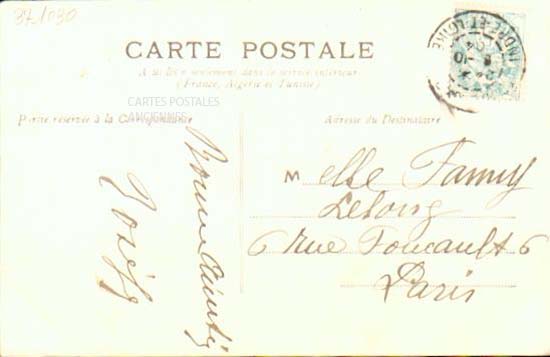 37/030
INDRE-ET-LOIRE
CARTE POSTALE
A utiliser seulement dans le service intérieur
(France, Algérie et Tunisie)
CARTES POSTALES
ANCIENNES
Partie réservée à la Correspondance
Adresse du Destinataire
Bonne Amitié
Melle Fanny
Lelong
6 rue Foucault 6
Paris